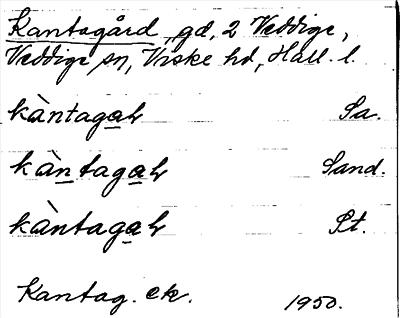 Kantagård, gd, 2 Veddige,
Veddige sn, Viske hd, Hall. l.
kàntagaɦ Sa.
kàntagaɦ Sand.
kàntagaɦ Pt.
Kantag. ek. 1950.